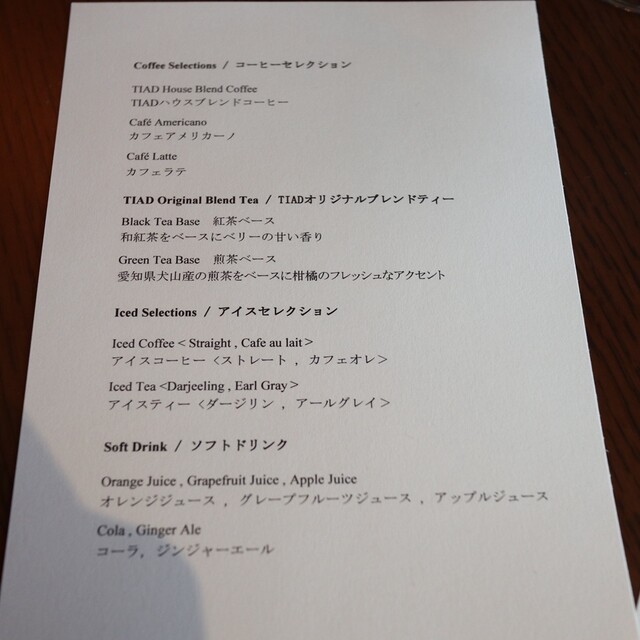 Coffee Selections / コーヒーセレクション
TIAD House Blend Coffee
TIADハウスブレンドコーヒー
Café Americano
カフェアメリカーノ
Café Latte
カフェラテ
TIAD Original Blend Tea / TIADオリジナルブレンドティー
Black Tea Base 紅茶ベース
和紅茶をベースにベリーの甘い香り
Green Tea Base 煎茶ベース
愛知県犬山産の煎茶をベースに柑橘のフレッシュなアクセント
Iced Selections / アイスセレクション
Iced Coffee < Straight , Cafe au lait>
アイスコーヒー <ストレート , カフェオレ>
Iced Tea <Darjeeling , Earl Gray>
アイスティー <ダージリン , アールグレイ>
Soft Drink / ソフトドリンク
Orange Juice , Grapefruit Juice , Apple Juice
オレンジジュース , グレープフルーツジュース , アップルジュース
Cola , Ginger Ale
コーラ, ジンジャーエール